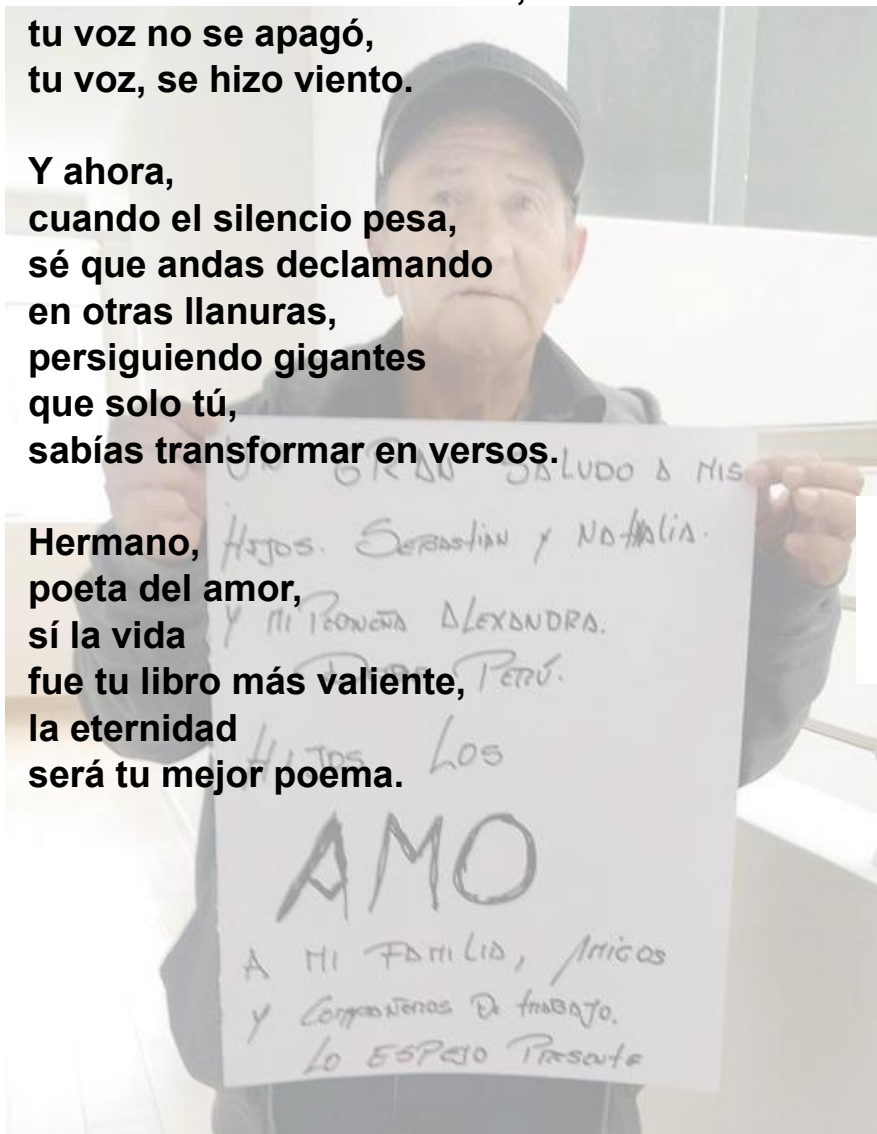 tu voz no se apagó,
tu voz, se hizo viento.
Y ahora,
cuando el silencio pesa,
sé que andas declamando
en otras llanuras,
persiguiendo gigantes
que solo tú,
sabías transformar en versos.
Hermano,
poeta del amor,
sí la vida
fue tu libro más valiente,
la eternidad
será tu mejor poema.
UN GRAN SALUDO A MIS
HIJOS. SEBASTIAN Y NATHALIA.
Y MI PEQUEÑA ALEXANDRA.
PERÚ.
HIJOS LOS
AMO
A MI FAMILIA, AMIGOS
Y COMPAÑEROS DE TRABAJO.
LO ESPEJO PRESENTE